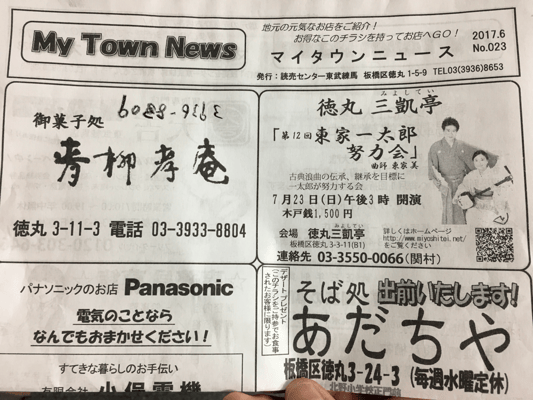 My Town News
地元の元気なお店をご紹介！
お得なこのチラシを持ってお店へGO！
マイタウンニュース
2017.6
No.023
発行：読売センター東武練馬 板橋区徳丸1-5-9 TEL03(3936)8653
御菓子処
青柳孝庵
徳丸 3-11-3 電話 03-3933-8804
みよしてい
徳丸 三凱亭
「第12回 東家一太郎
努力会」
曲師 東家 美
古典浪曲の伝承、継承を目標に
一太郎が努力する会
7月23日(日)午後3時 開演
木戸銭1,500円
みよしてい
会場 徳丸三凱亭
板橋区徳丸3-3-11(B1)
連絡先 03-3550-0066（関村）
詳しくはホームページ
http://www.miyoshitei.net/
をご覧ください
パナソニックのお店 Panasonic
電気のことなら
なんでもおまかせください！
すてきな暮らしのお手伝い
有限会社 小俣電機
デザートプレゼント
（このチラシをご持参でお食事
されたお客様に限ります）
そば処 出前いたします！
あだちや
板橋区徳丸3-24-3（毎週水曜定休）
北野小学校正門前